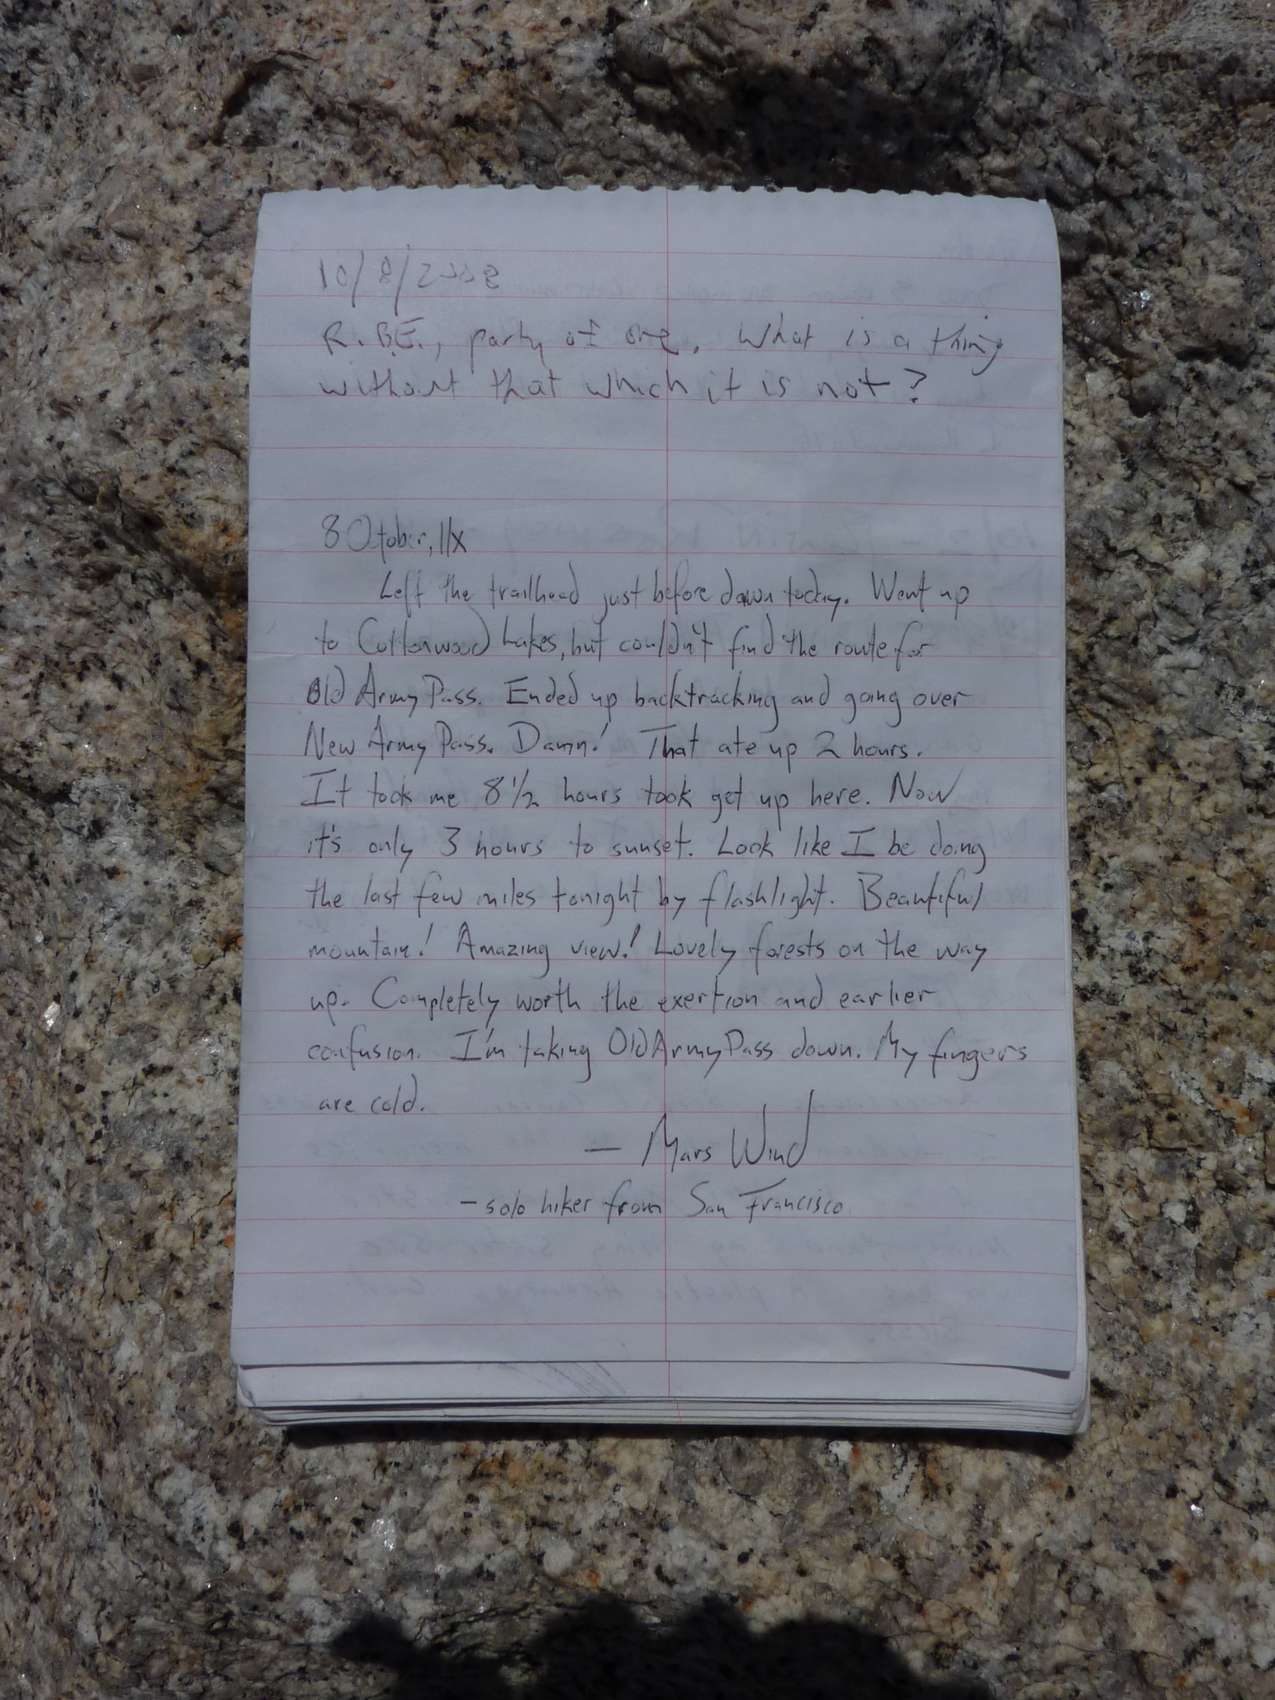 10/8/2008
R.B.E., party of one. What is a thing
without that which it is not?
8 Otober, 11x
Left the trailhead just before dawn today. Went up
to Cottonwood Lakes, but couldn't find the route for
Old Army Pass. Ended up backtracking and going over
New Army Pass. Damn! That ate up 2 hours.
It took me 8 1/2 hours took get up here. Now
it's only 3 hours to sunset. Look like I be doing
the last few miles tonight by flashlight. Beautiful
mountain! Amazing view! Lovely forests on the way
up. Completely worth the exertion and earlier
confusion. I'm taking Old Army Pass down. My fingers
are cold.
— Mars Wind
- solo hiker from San Francisco